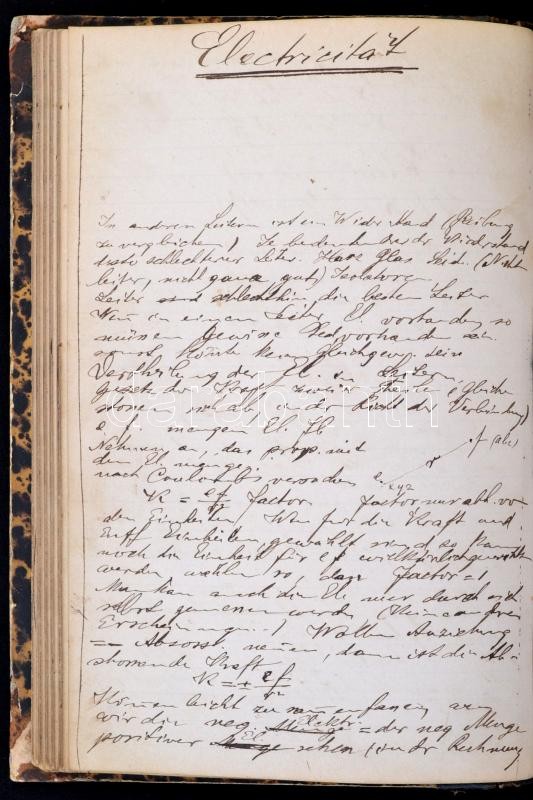 Electricität
In anderen Leitern ist ein Widerstand (Reibung
zu vergleichen) Je bedeutender der Widerstand
desto schlechterer Leiter. Harz Glas Seide (Nicht
leiter, nicht ganz gut) Isolatoren.
Leiter sind schlechthin die besten Leiter
Wenn in einem Leiter El. vorhanden so
müssen gewisse vorhanden sein
sonst könnte kein Gleichgew. sein
Vertheilung der El. in Leitern.
Gesetz der Kraft zweier Theilen (gleiche
stossen sich ab in der Richt. der Verbindung)
e mengen El.
Nehmen an, das prop. mit
den El. menge
nach Coulombs versuchen
e xyz r f (abc)
K = ef/r² Factor Factor nur abh. von
den Einheiten. Wenn für die Kraft und
Entf Einheiten gewählt sind, so kann
noch die Einheit für ef willkürlich gewählt
werden wählen so, dass Factor = 1
Man kann auch die El. nur durch sich
selbst gemessen werden
Erscheinungen.) Wollen Anziehung
= – Abstoss. nennen, dann ist die Ab-
stossende Kraft
K = ± ef/r²
Können leicht zusammenfassen, wenn
wir die neg Elektr. = der neg Menge
positiver El. sehen (in der Rechnung
darabanth